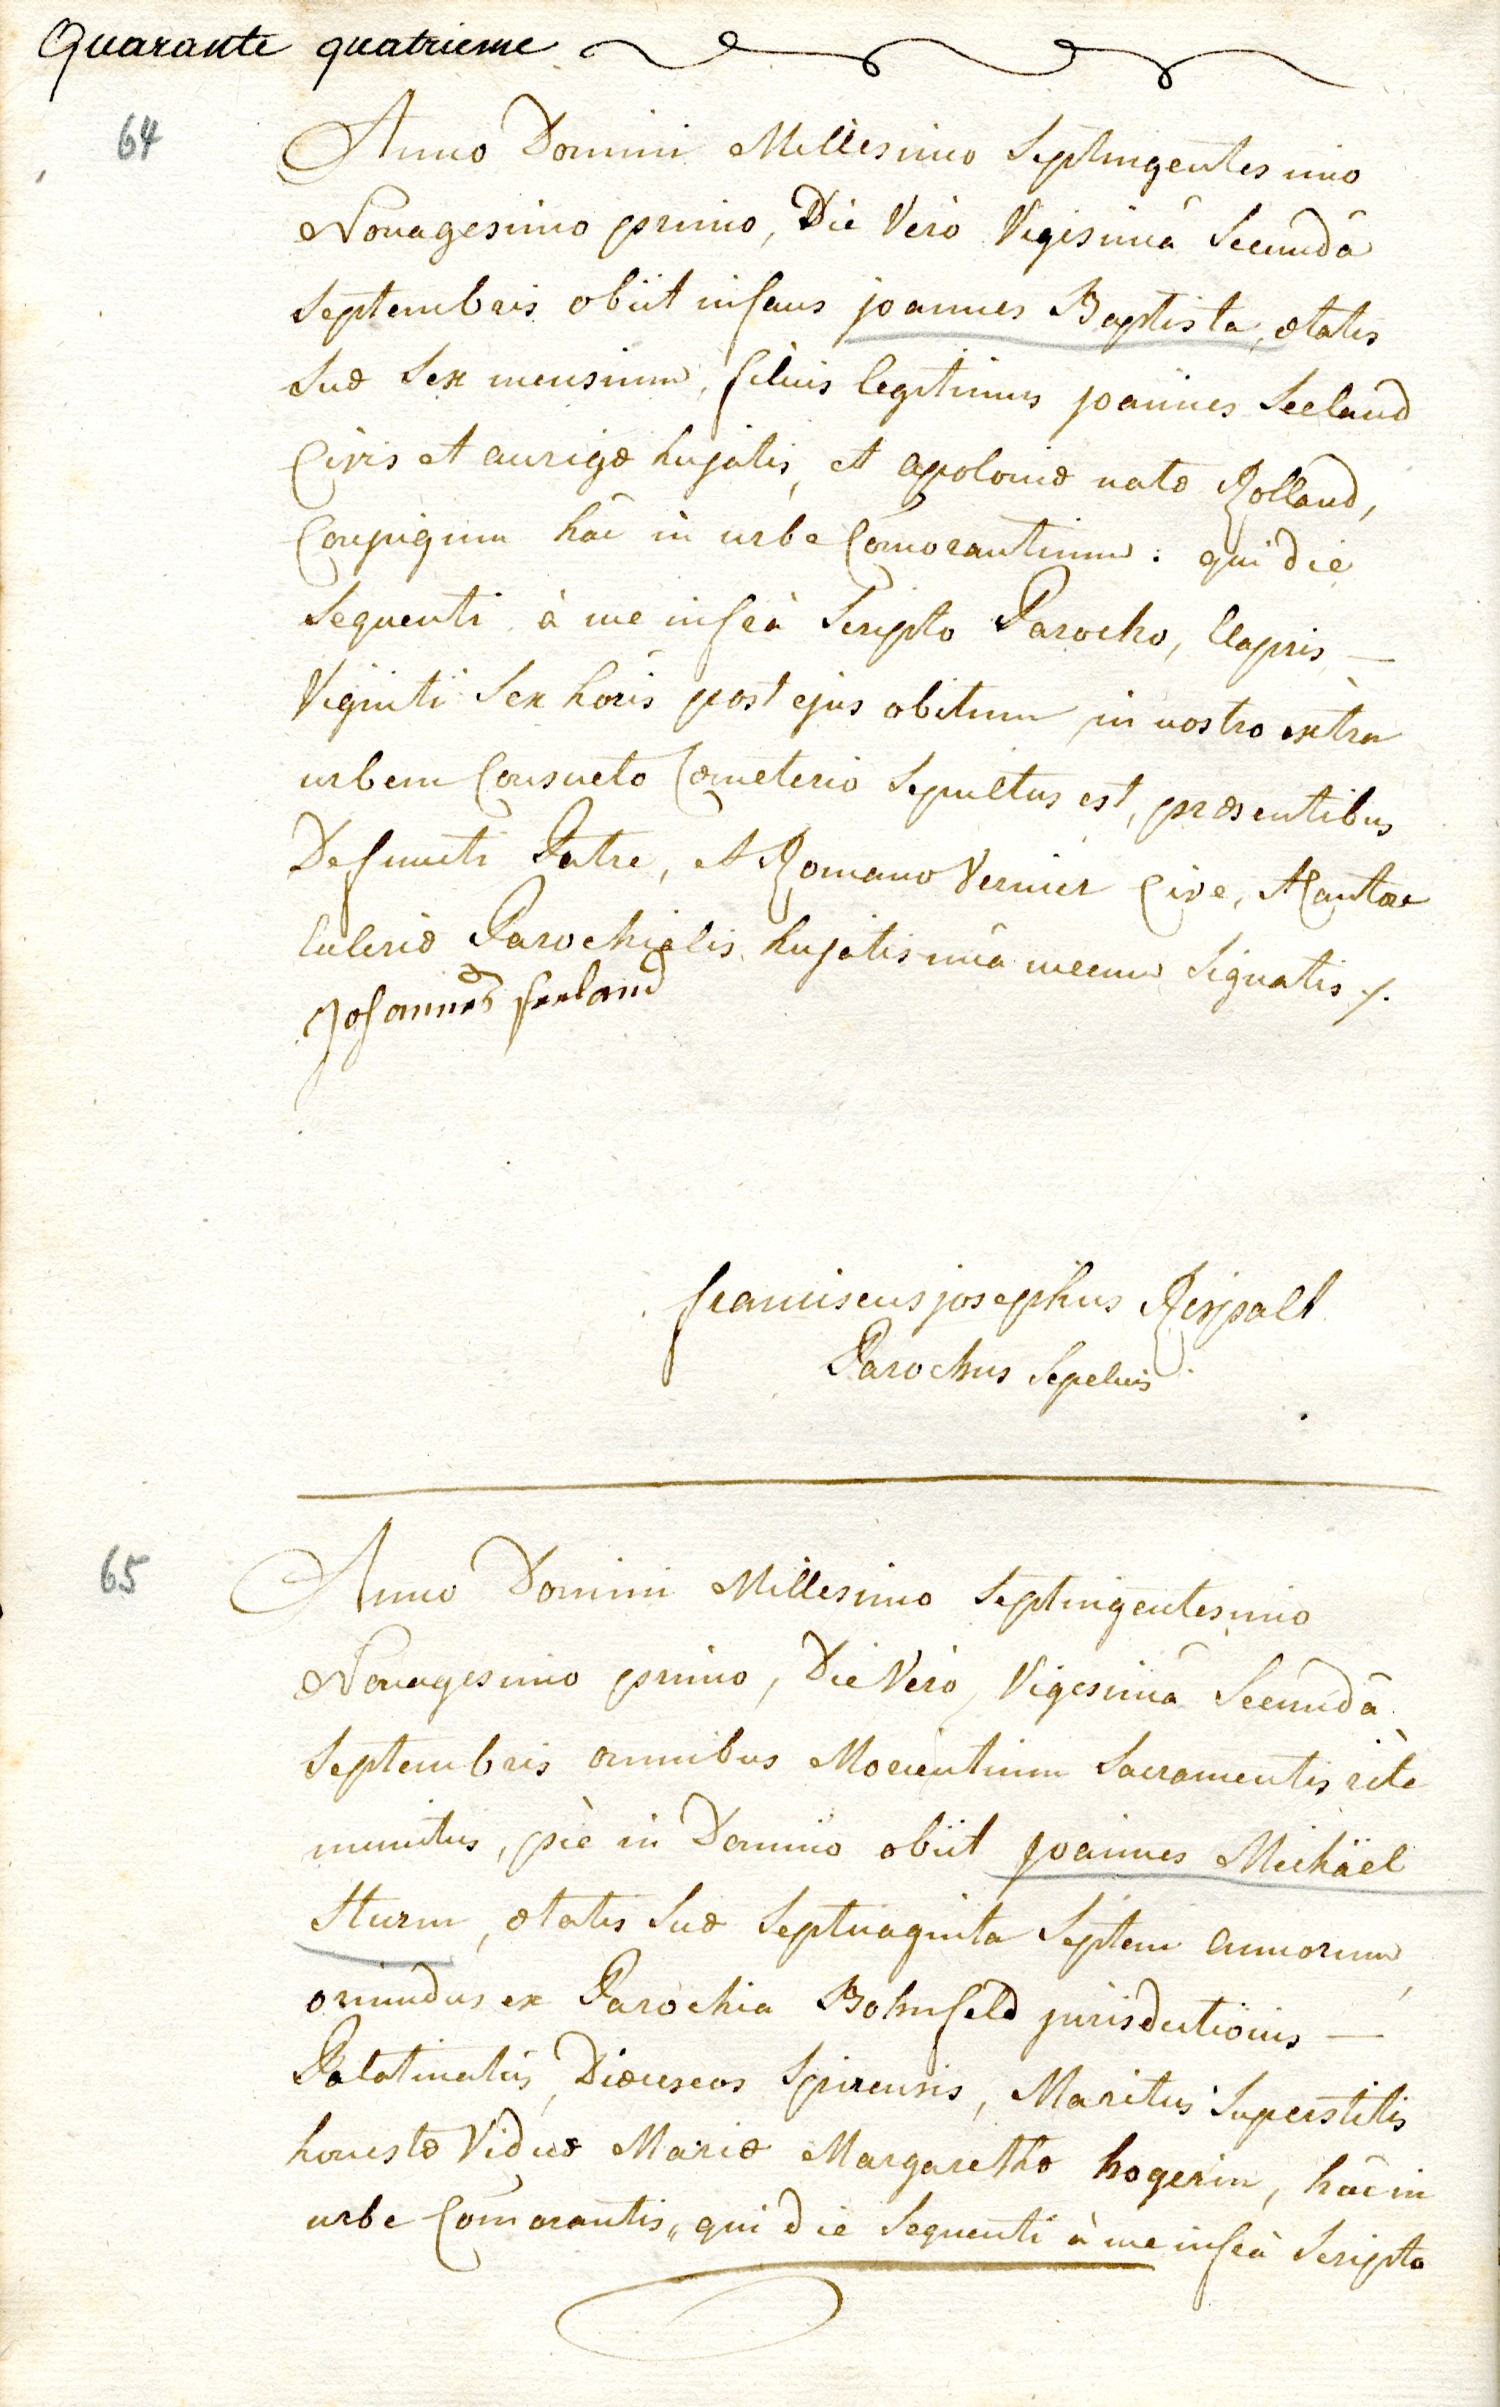 Quarante quatrieme
64
Anno Domini Millesimo Septingentesimo
Nonagesimo primo, Die Vero Vigesimâ Secundâ
Septembris obiit infans joannes Baptista, ætatis
Suæ Sex mensium, filius legitimus joannes Seeland
Civis et aurigæ hujatis, et apoloniæ natæ Rolland,
Conjugum hâc in urbe Comorantium: qui die
Sequenti à me infrà Scripto Parocho, Elapsis —
Viginti Sex horis post ejus obitum in nostro extra
urbem Consueto Cœmeterio Sepultus est, præsentibus
Defuncti Patre, et Romano Vernier Cive, et Cantore
Parochialis hujatis unà mecum Signatis ⁒.
Johannes seeland
franciscus josephus
Parochus Sepeliens
65
Anno Domini Millesimo Septingentesimo
Nonagesimo primo, Die Vero, Vigesimâ Secundâ
Septembris omnibus Morientium Sacramentis rite
munitus, piè in Domino obiit joannes Michäel
Sturm, ætatis Suæ Septuaginta Septem annorum,
oriundus ex Parochia Bohnfeld jurisdictionis —
Palatinatûs, Diœceseos Spirensis, Maritus Superstitis
honestæ Viduæ Mariæ Margarethæ hogerin, hâc in
urbe Comorantis, qui die Sequenti à me infrà Scripto